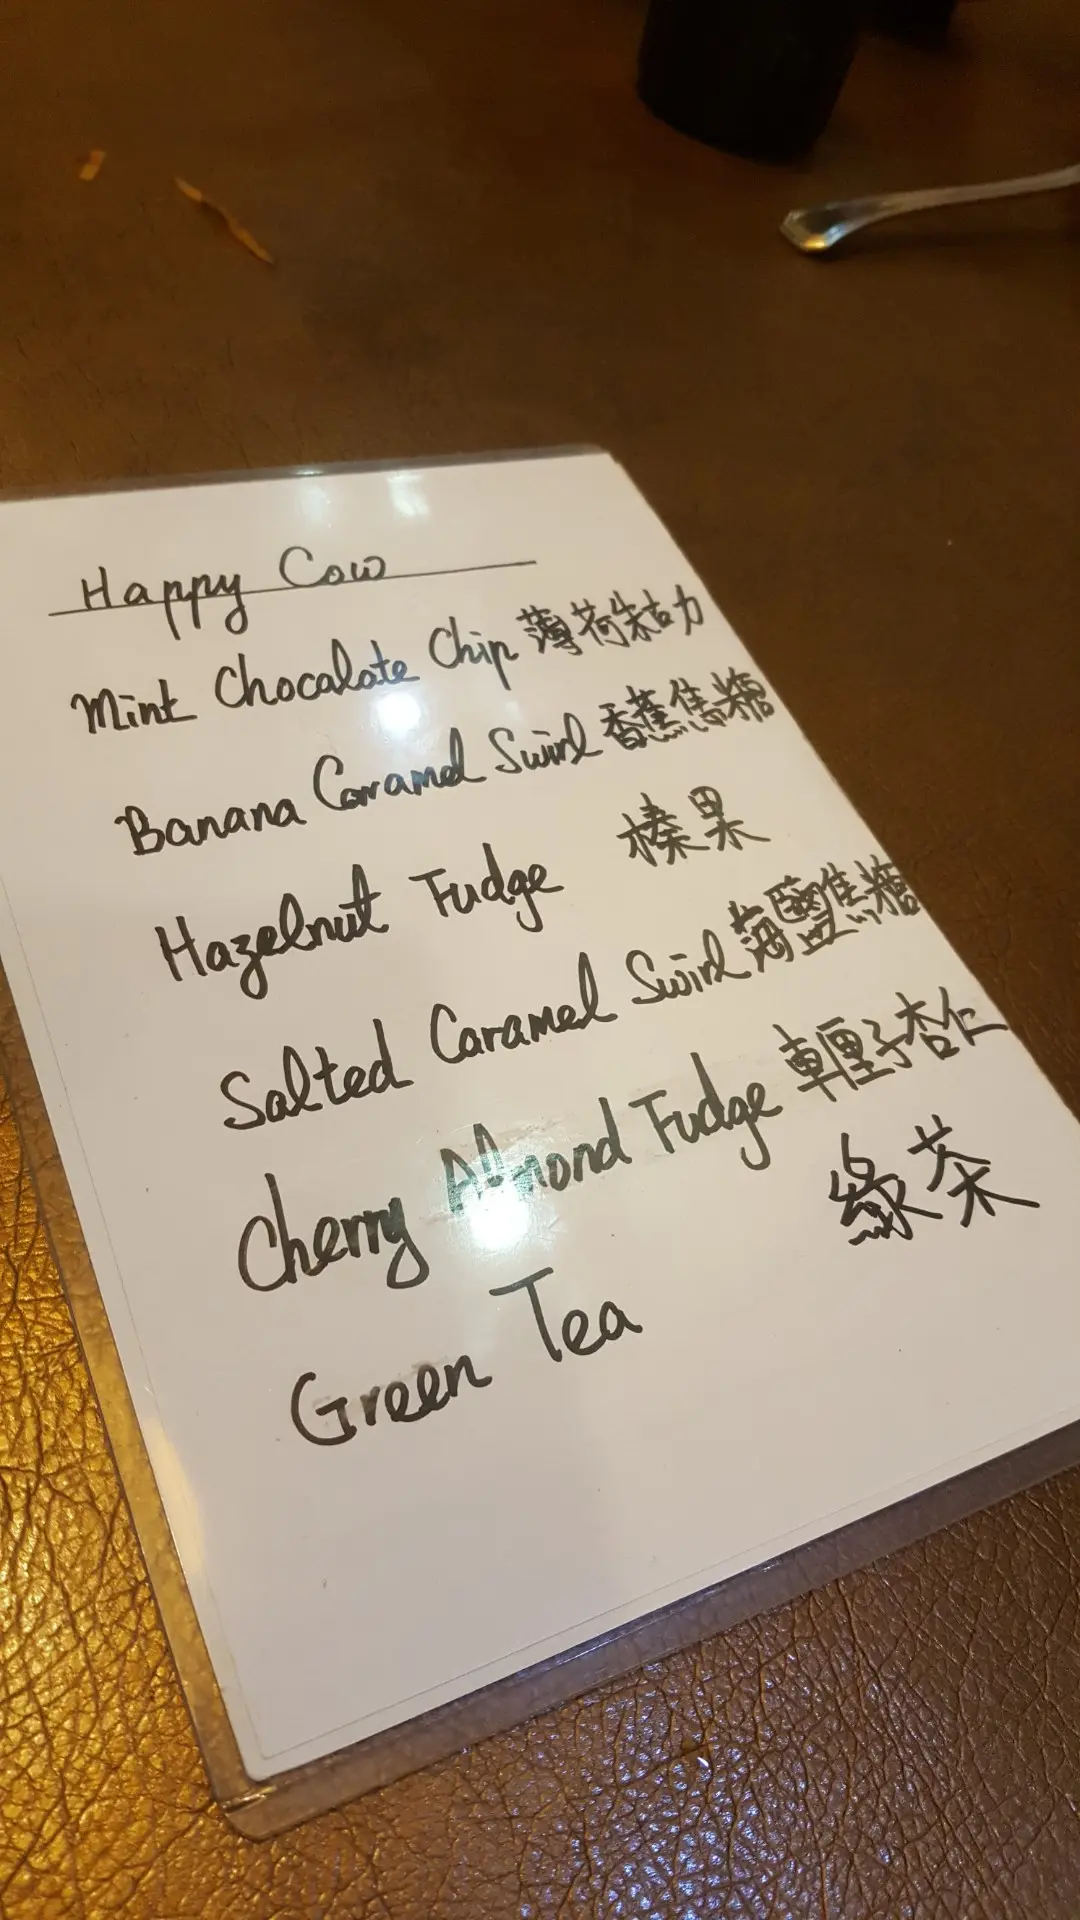 Happy Cow
Mint Chocalate Chip 薄荷朱古力
Banana Caramel Swirl 香蕉焦糖
Hazelnut Fudge 榛果
Salted Caramel Swirl 海鹽焦糖
Cherry Almond Fudge 車厘子杏仁
Green Tea 綠茶